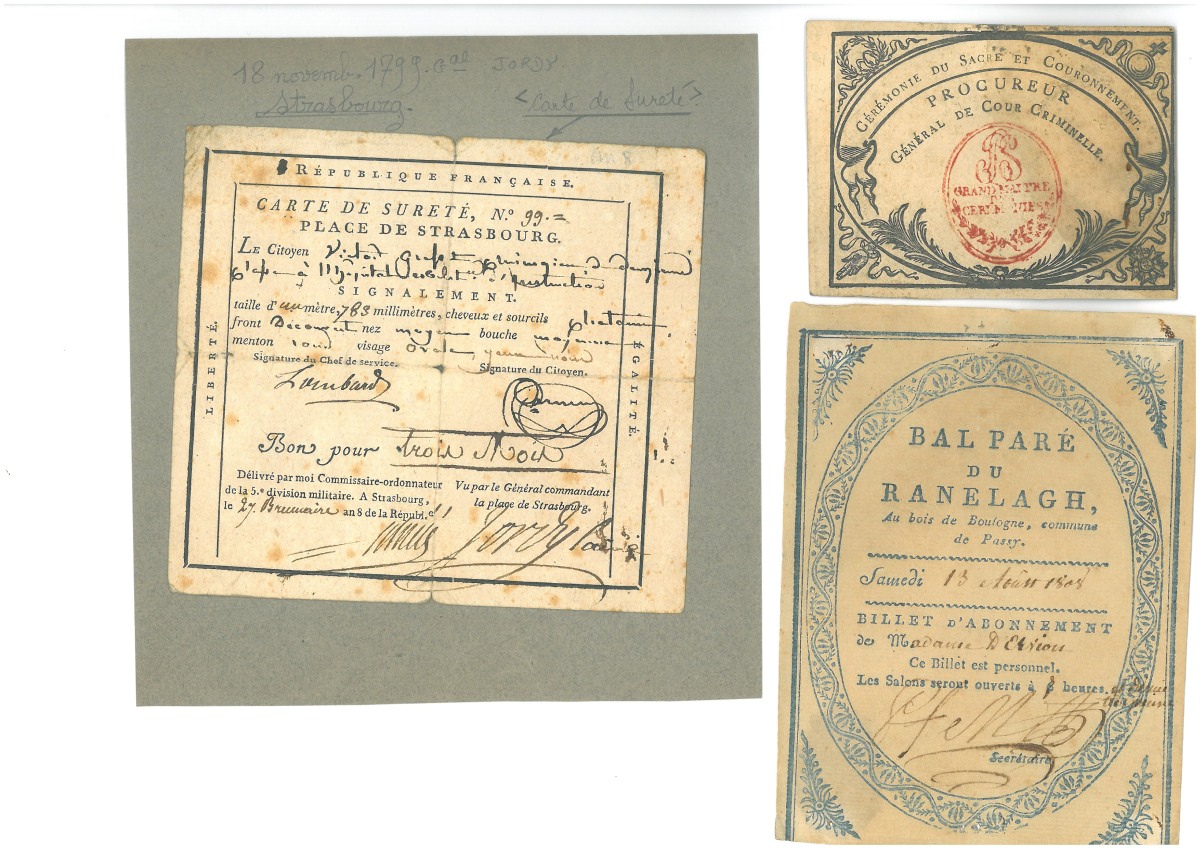 18 novemb. 1799. Gal JORDY
Strasbourg.
<Carte de Sureté>
an 8
RÉPUBLIQUE FRANÇAISE.
CARTE DE SURETÉ, N.º 99.=
PLACE DE STRASBOURG.
LE Citoyen
à l'hôpital d'instruction
SIGNALEMENT.
taille d'un mètre, 783 millimètres, cheveux et sourcils
front Découvert nez moyen bouche moyenne
menton rond visage Ovale
Signature du Chef de service.
Signature du Citoyen.
Lombard
Bon pour trois Mois
Délivré par moi Commissaire-ordonnateur
de la 5.e division militaire. A Strasbourg,
le 27 Brumaire an 8 de la Républ.
Vu par le Général commandant
la place de Strasbourg.
Jordy
LIBERTÉ.
ÉGALITÉ.
CÉRÉMONIE DU SACRE ET COURONNEMENT.
PROCUREUR
GÉNÉRAL DE COUR CRIMINELLE.
GRAND MAITRE
DES
CEREMONIES
BAL PARÉ
DU
RANELAGH,
Au bois de Boulogne, commune
de Passy.
Samedi 13 Août 1808
BILLET D'ABONNEMENT
de Madame
Ce Billet est personnel.
Les Salons seront ouverts à 8 heures et demie
Secrétaire